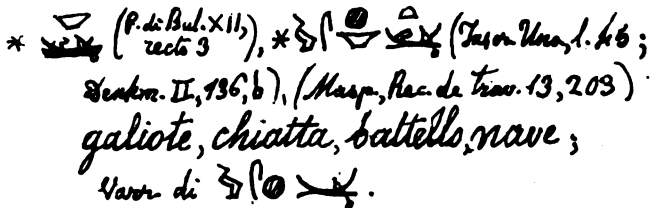 * (P. di Bul. XII, recto 3), * (Inscr. Una, l. 45;
Denkm. II, 136, b), (Masp., Rec. de trav. 13, 203)
galiote, chiatta, battello, nave;
di .